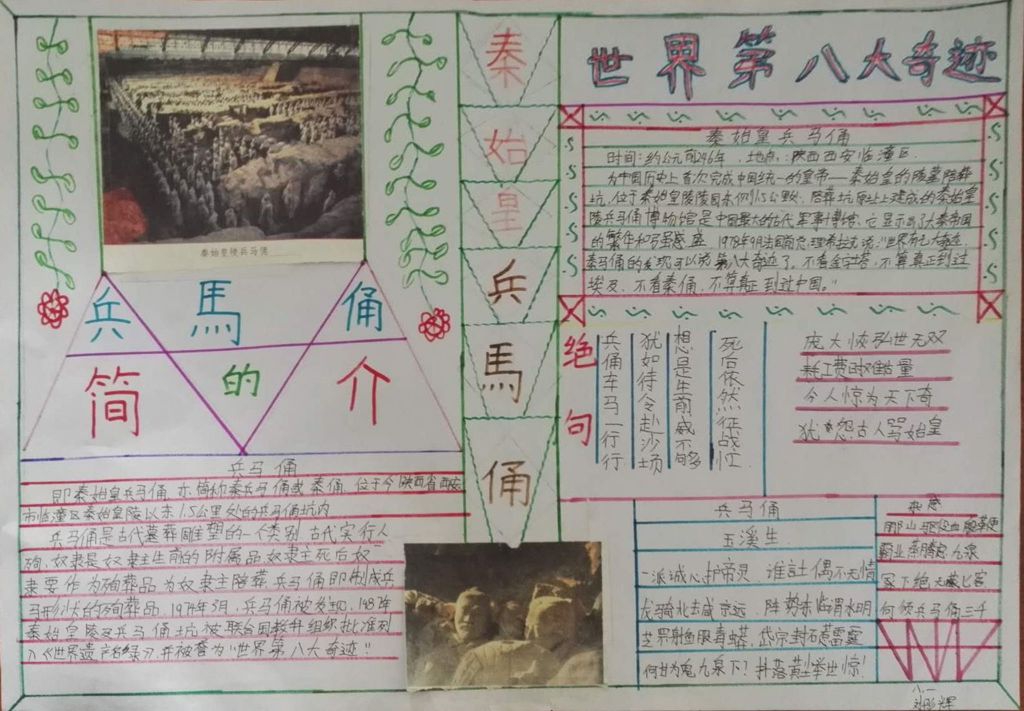 秦始皇陵兵马俑
兵馬俑
的
简介
兵马俑
即秦始皇兵马俑,亦简称秦兵马俑或秦俑,位于今陕西省西安
市临潼区秦始皇陵以东1.5公里处的兵马俑坑内
兵马俑是古代墓葬雕塑的一个类别.古代实行人
殉,奴隶是奴隶主生前的附属品,奴隶主死后奴
隶要作为殉葬品为奴隶主陪葬.兵马俑即制成兵
马形状的殉葬品,1974年3月,兵马俑被发现,1987年
秦始皇陵及兵马俑坑被联合国教科组织批准列
入《世界遗产名录》,并被誉为"世界第八大奇迹"
秦始皇兵馬俑
世界第八大奇迹
秦始皇兵马俑
时间:约公元前246年.地点:陕西西安临潼区.
为中国历史上首次完成中国统一的皇帝——秦始皇的陵墓陪葬
坑,位于秦始皇陵陵园东侧1.5公里处.陪葬坑原址上建成的秦始皇
陵兵马俑博物馆是中国最大的古代军事博物馆.它显示了大秦帝国
的繁华和强盛.1978年9月法国前总理希拉克说:"世界有七大奇迹,
秦马俑的发现可以说第八大奇迹了.不看金字塔,不算真正到过
埃及,不看秦俑,不算真正到过中国."
绝句
兵俑车马一行行
犹如待令赴沙场
想是生前威不够
死后依然征战忙
庞大恢弘世无双
耗工费时难估量
令人惊为天下奇
犹怨古人骂始皇
兵马俑
玉溪生
一派诚心护帝灵,谁让偶不无情
龙骑北去咸京远,阵势东临渭水明
芝罘射鱼眼毒蟒,岱宗封石惹雷霆
何甘为鬼九泉下?抖落黄土举世惊!
杂感
霸业蒸腾
何须兵马俑三千
八.一